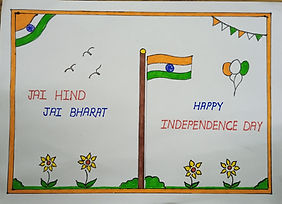 JAI HIND
JAI BHARAT
HAPPY
INDEPENDENCE DAY